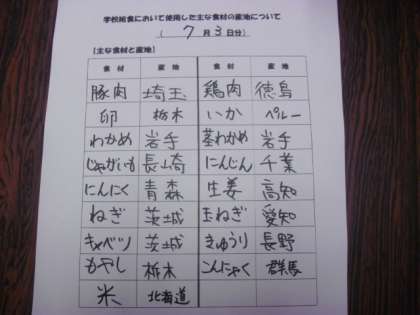 学校給食において使用した主な食材の産地について
( 7月3日分)
【主な食材と産地】
食材 産地 食材 産地
豚肉 埼玉 鶏肉 徳島
卵 栃木 いか ペルー
わかめ 岩手 茎わかめ 岩手
じゃがいも 長崎 にんじん 千葉
にんにく 青森 生姜 高知
ねぎ 茨城 玉ねぎ 愛知
キャベツ 茨城 きゅうり 長野
もやし 栃木 こんにゃく 群馬
米 北海道